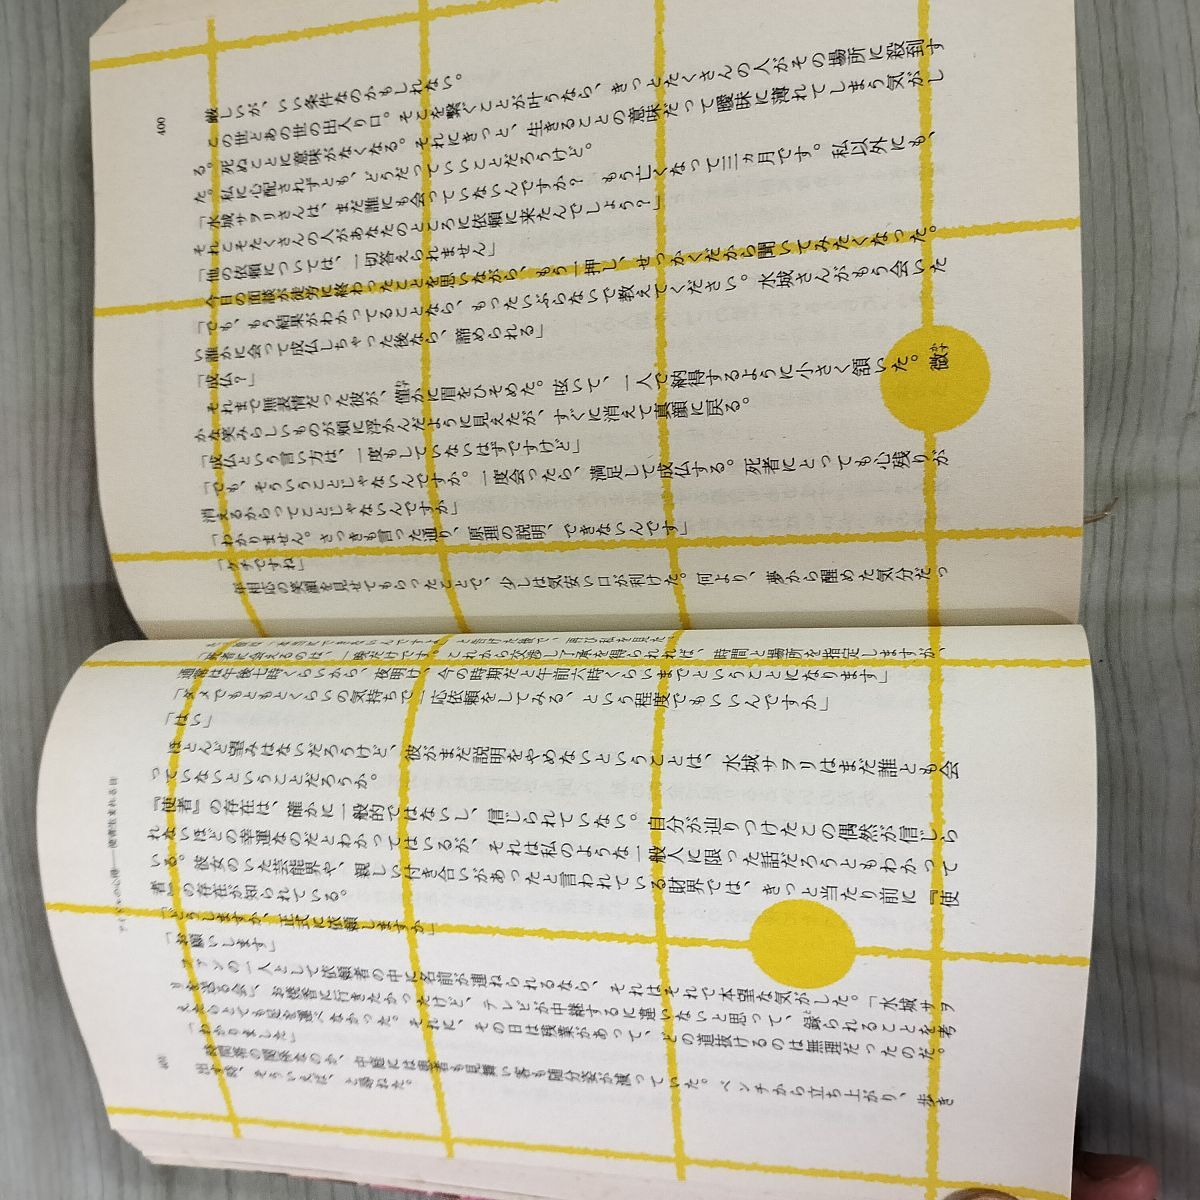 400
厳しいが、いい条件なのかもしれない。
この世とあの世の出入り口。そこを繋ぐことが叶うなら、きっとたくさんの人がその場所に殺到す
る。死ぬことに意味がなくなる。それにきっと、生きることの意味だって曖昧に薄れてしまう気がし
た。私に心配されずとも、どうだっていいことだろうけど。
「水城サヲリさんは、まだ誰にも会っていないんですか？ もう亡くなって三ヵ月です。私以外にも、
それこそたくさんの人があなたのところに依頼に来たんでしょう？」
「他の依頼については、一切答えられません」
今日の面談が徒労に終わったことを思いながら、もう一押し、せっかくだから聞いてみたくなった。
「でも、もう結果がわかってることなら、もったいぶらないで教えてください。水城さんがもう会いた
い誰かに会って成仏しちゃった後なら、諦められる」
「成仏？」
それまで無表情だった彼が、僅かに眉をひそめた。呟いて、一人で納得するように小さく頷いた。微
かな笑みらしいものが頬に浮かんだように見えたが、すぐに消えて真顔に戻る。
「成仏という言い方は、一度もしていないはずですけど」
「でも、そういうことじゃないんですか。一度会ったら、満足して成仏する。死者にとっても心残りが
消えるからってことじゃないんですか」
「わかりません。さっきも言った通り、原理の説明、できないんです」
「ケチですね」
年相応の笑顔を見せてもらったことで、少しは気安い口が利けた。何より、夢から醒めた気分だっ
「死者に会えるのは、一晩だけです。これから交渉して了承を得られれば、時間と場所を指定しますが、
通常は午後七時くらいから、夜明け、今の時期だと午前六時くらいまでということになります」
「ダメでもともとくらいの気持ちで一応依頼をしてみる、という程度でもいいんですか」
「はい」
ほとんど望みはないだろうけど、彼がまだ説明をやめないということは、水城サヲリはまだ誰とも会
っていないということだろうか。
『使者』の存在は、確かに一般的ではないし、信じられていない。自分が辿りつけたこの偶然が信じら
れないほどの幸運なのだとわかってはいるが、それは私のような一般人に限った話だろうともわかって
いる。彼女のいた芸能界や、親しい付き合いがあったと言われている財界では、きっと当たり前に『使
者』の存在が知られている。
「どうしますか、正式に依頼しますか」
「お願いします」
ファンの一人として依頼者の中に名前が連ねられるなら、それはそれで本望な気がした。「水城サヲ
リを送る会」、お焼香に行きたかったけど、テレビが中継するに違いないと思って、録られることを考
えたらとても足を運べなかった。それに、その日は残業があって、どの道抜けるのは無理だったのだ。
「わかりました」
時間帯の関係なのか、中庭には患者も見舞い客も随分姿が減っていた。ベンチから立ち上がり、歩き
出す時、そういえば、と尋ねた。
401